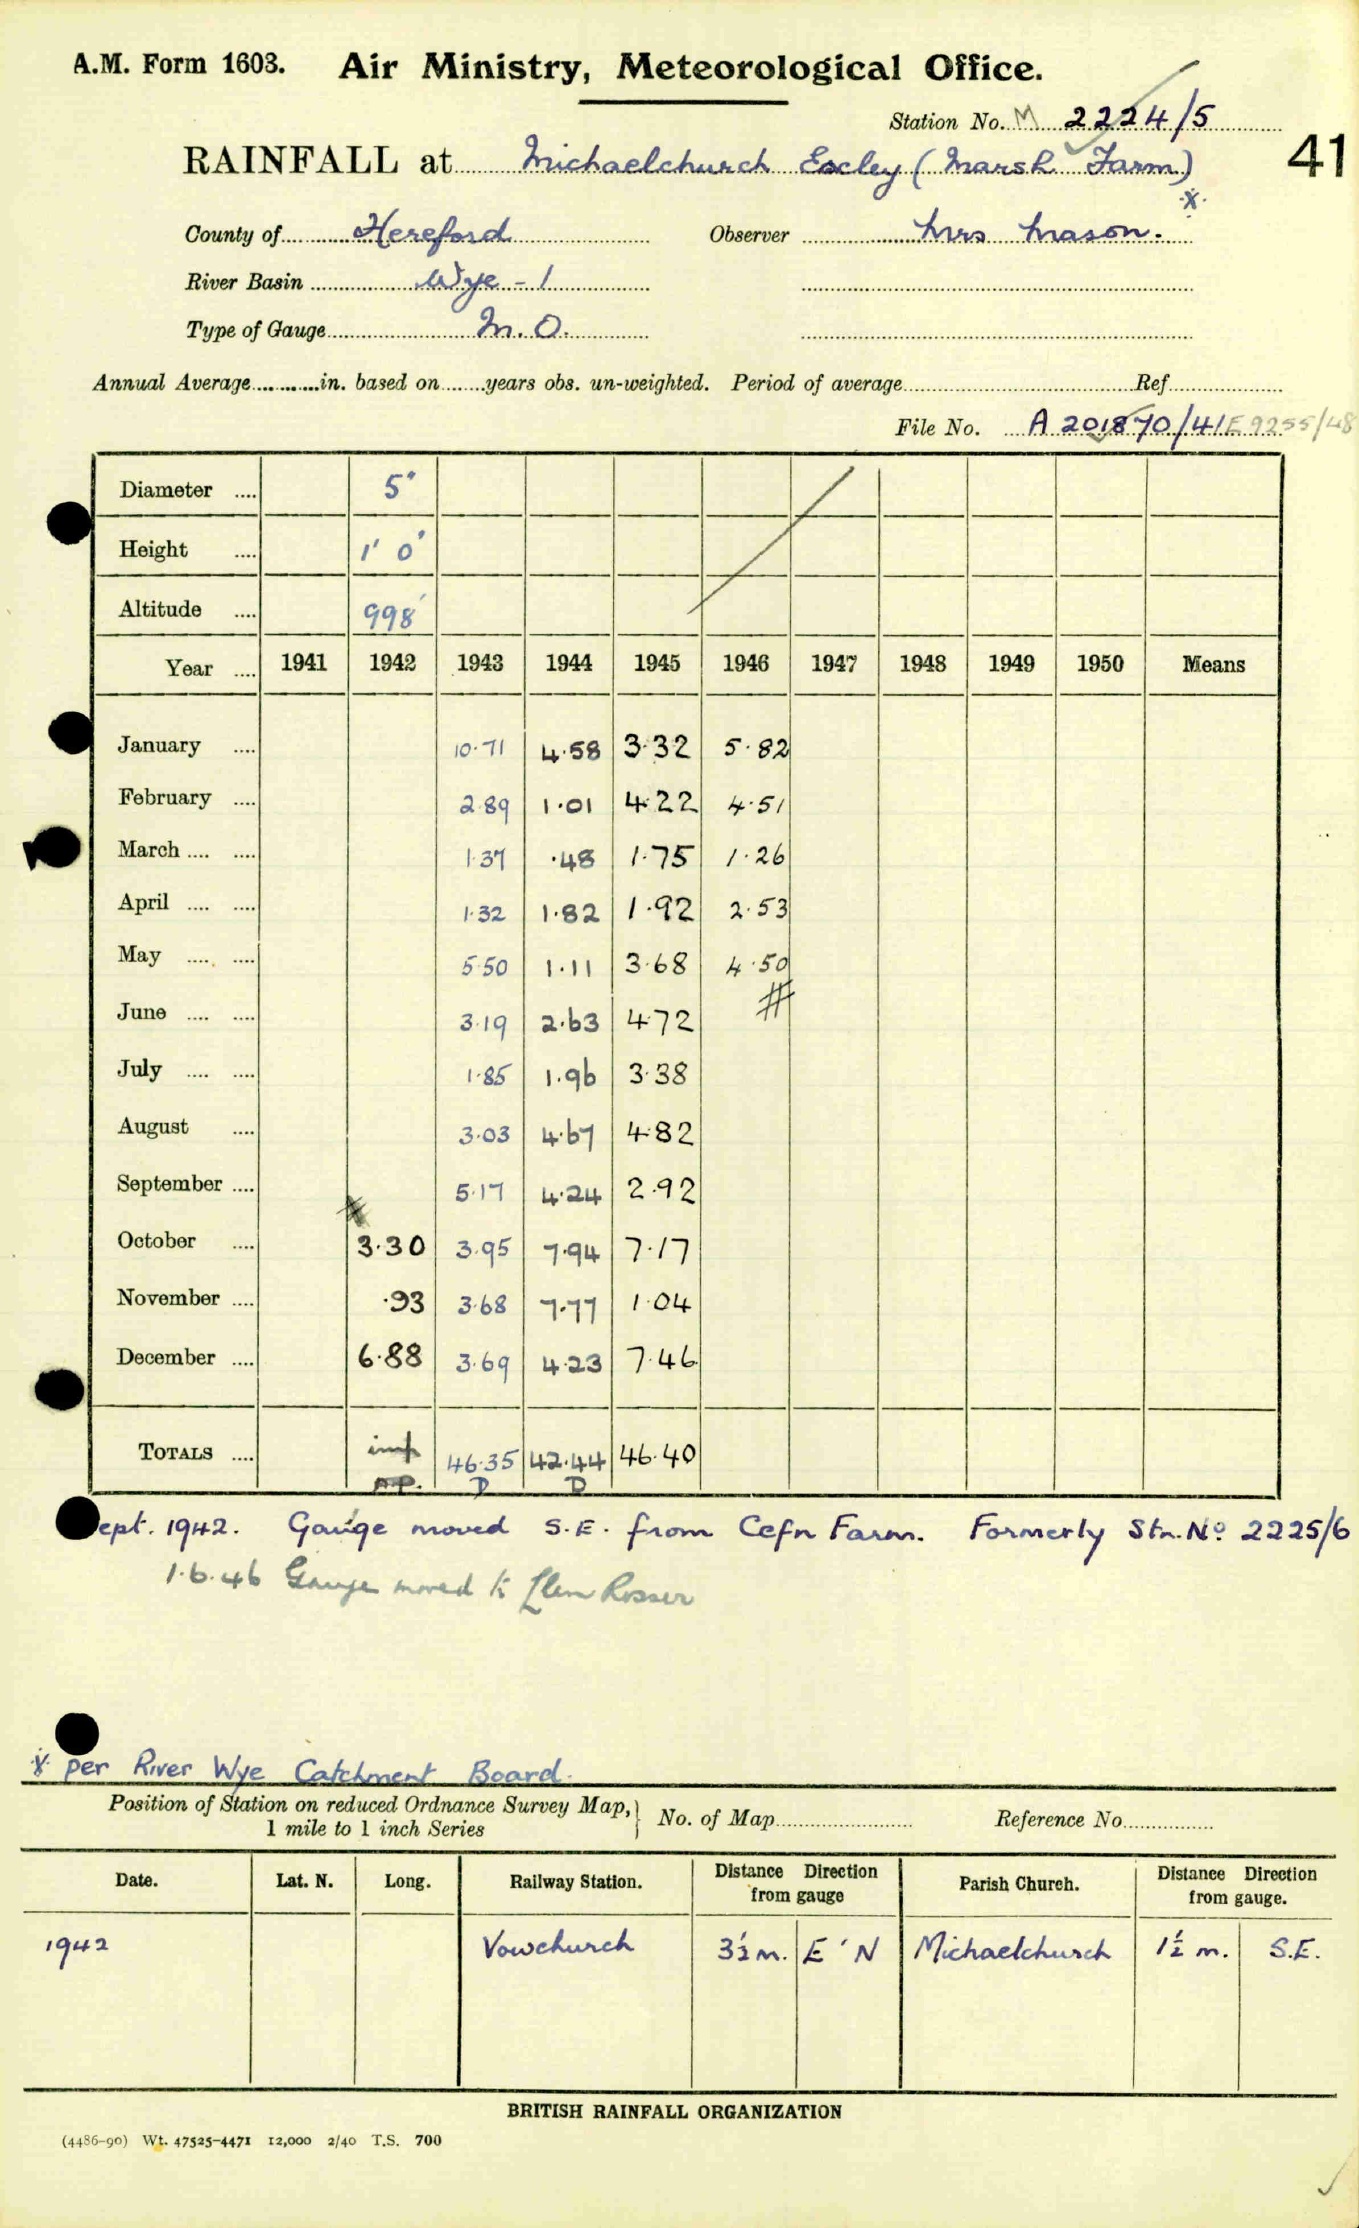 A.M. Form 1603. Air Ministry, Meteorological Office.
Station No. M 2224/5
RAINFALL at Michaelchurch Escley (Marsh Farm) 41
County of Hereford Observer Mrs Mason.
River Basin Wye - 1
Type of Gauge M.O.
Annual Average in. based on years obs. un-weighted. Period of average Ref
File No. A 201870/41 E 9255/48
Diameter 5"
Height 1' 0"
Altitude 998'
Year 1941 1942 1943 1944 1945 1946 1947 1948 1949 1950 Means
January 10.71 4.58 3.32 5.82
February 2.89 1.01 4.22 4.51
March 1.37 .48 1.75 1.26
April 1.32 1.82 1.92 2.53
May 5.50 1.11 3.68 4.50
June 3.19 2.63 4.72
July 1.85 1.96 3.38
August 3.03 4.67 4.82
September 5.17 4.24 2.92
October 3.30 3.95 7.94 7.17
November .93 3.68 7.77 1.04
December 6.88 3.69 4.23 7.46
TOTALS imp 46.35 42.44 46.40
A.P. D D
ept. 1942. Gauge moved S.E. from Cefn Farm. Formerly Stn. No 2225/6
1.6.46 Gauge moved to Llan Rosser
x per River Wye Catchment Board.
Position of Station on reduced Ordnance Survey Map, 1 mile to 1 inch Series No. of Map Reference No.
Date. Lat. N. Long. Railway Station. Distance Direction from gauge Parish Church. Distance Direction from gauge.
1942 Vowchurch 3½ m. E ' N Michaelchurch 1½ m. S.E.
BRITISH RAINFALL ORGANIZATION
(4486-90) Wt. 47525-4471 12,000 2/40 T.S. 700